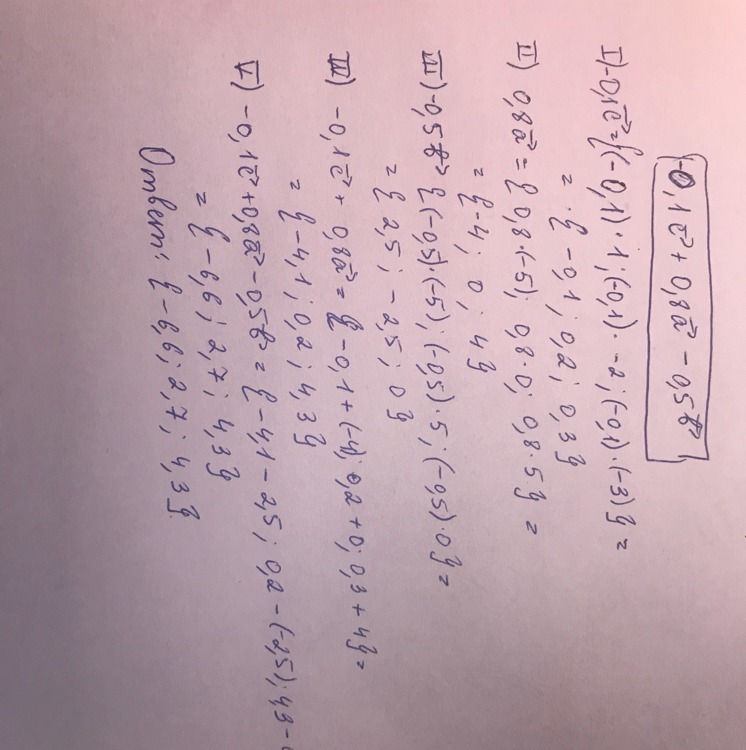 -0,1c⃗ + 0,8a⃗ - 0,5b⃗
I) -0,1c⃗ = {(-0,1)·1; (-0,1)·-2; (-0,1)·(-3)} =
= {-0,1; 0,2; 0,3}
II) 0,8a⃗ = {0,8·(-5); 0,8·0; 0,8·5} =
= {-4; 0; 4}
III) -0,5b⃗ {(-0,5)·(-5); (-0,5)·5; (-0,5)·0} =
= {2,5; -2,5; 0}
-0,1c⃗ + 0,8a⃗ = {-0,1+(-4); 0,2+0; 0,3+4} =
= {-4,1; 0,2; 4,3}
V) -0,1c⃗+0,8a⃗-0,5b⃗ = {-4,1-2,5; 0,2-(-2,5); 4,3-
= {-6,6; 2,7; 4,3}
Ответ: {-6,6; 2,7; 4,3}